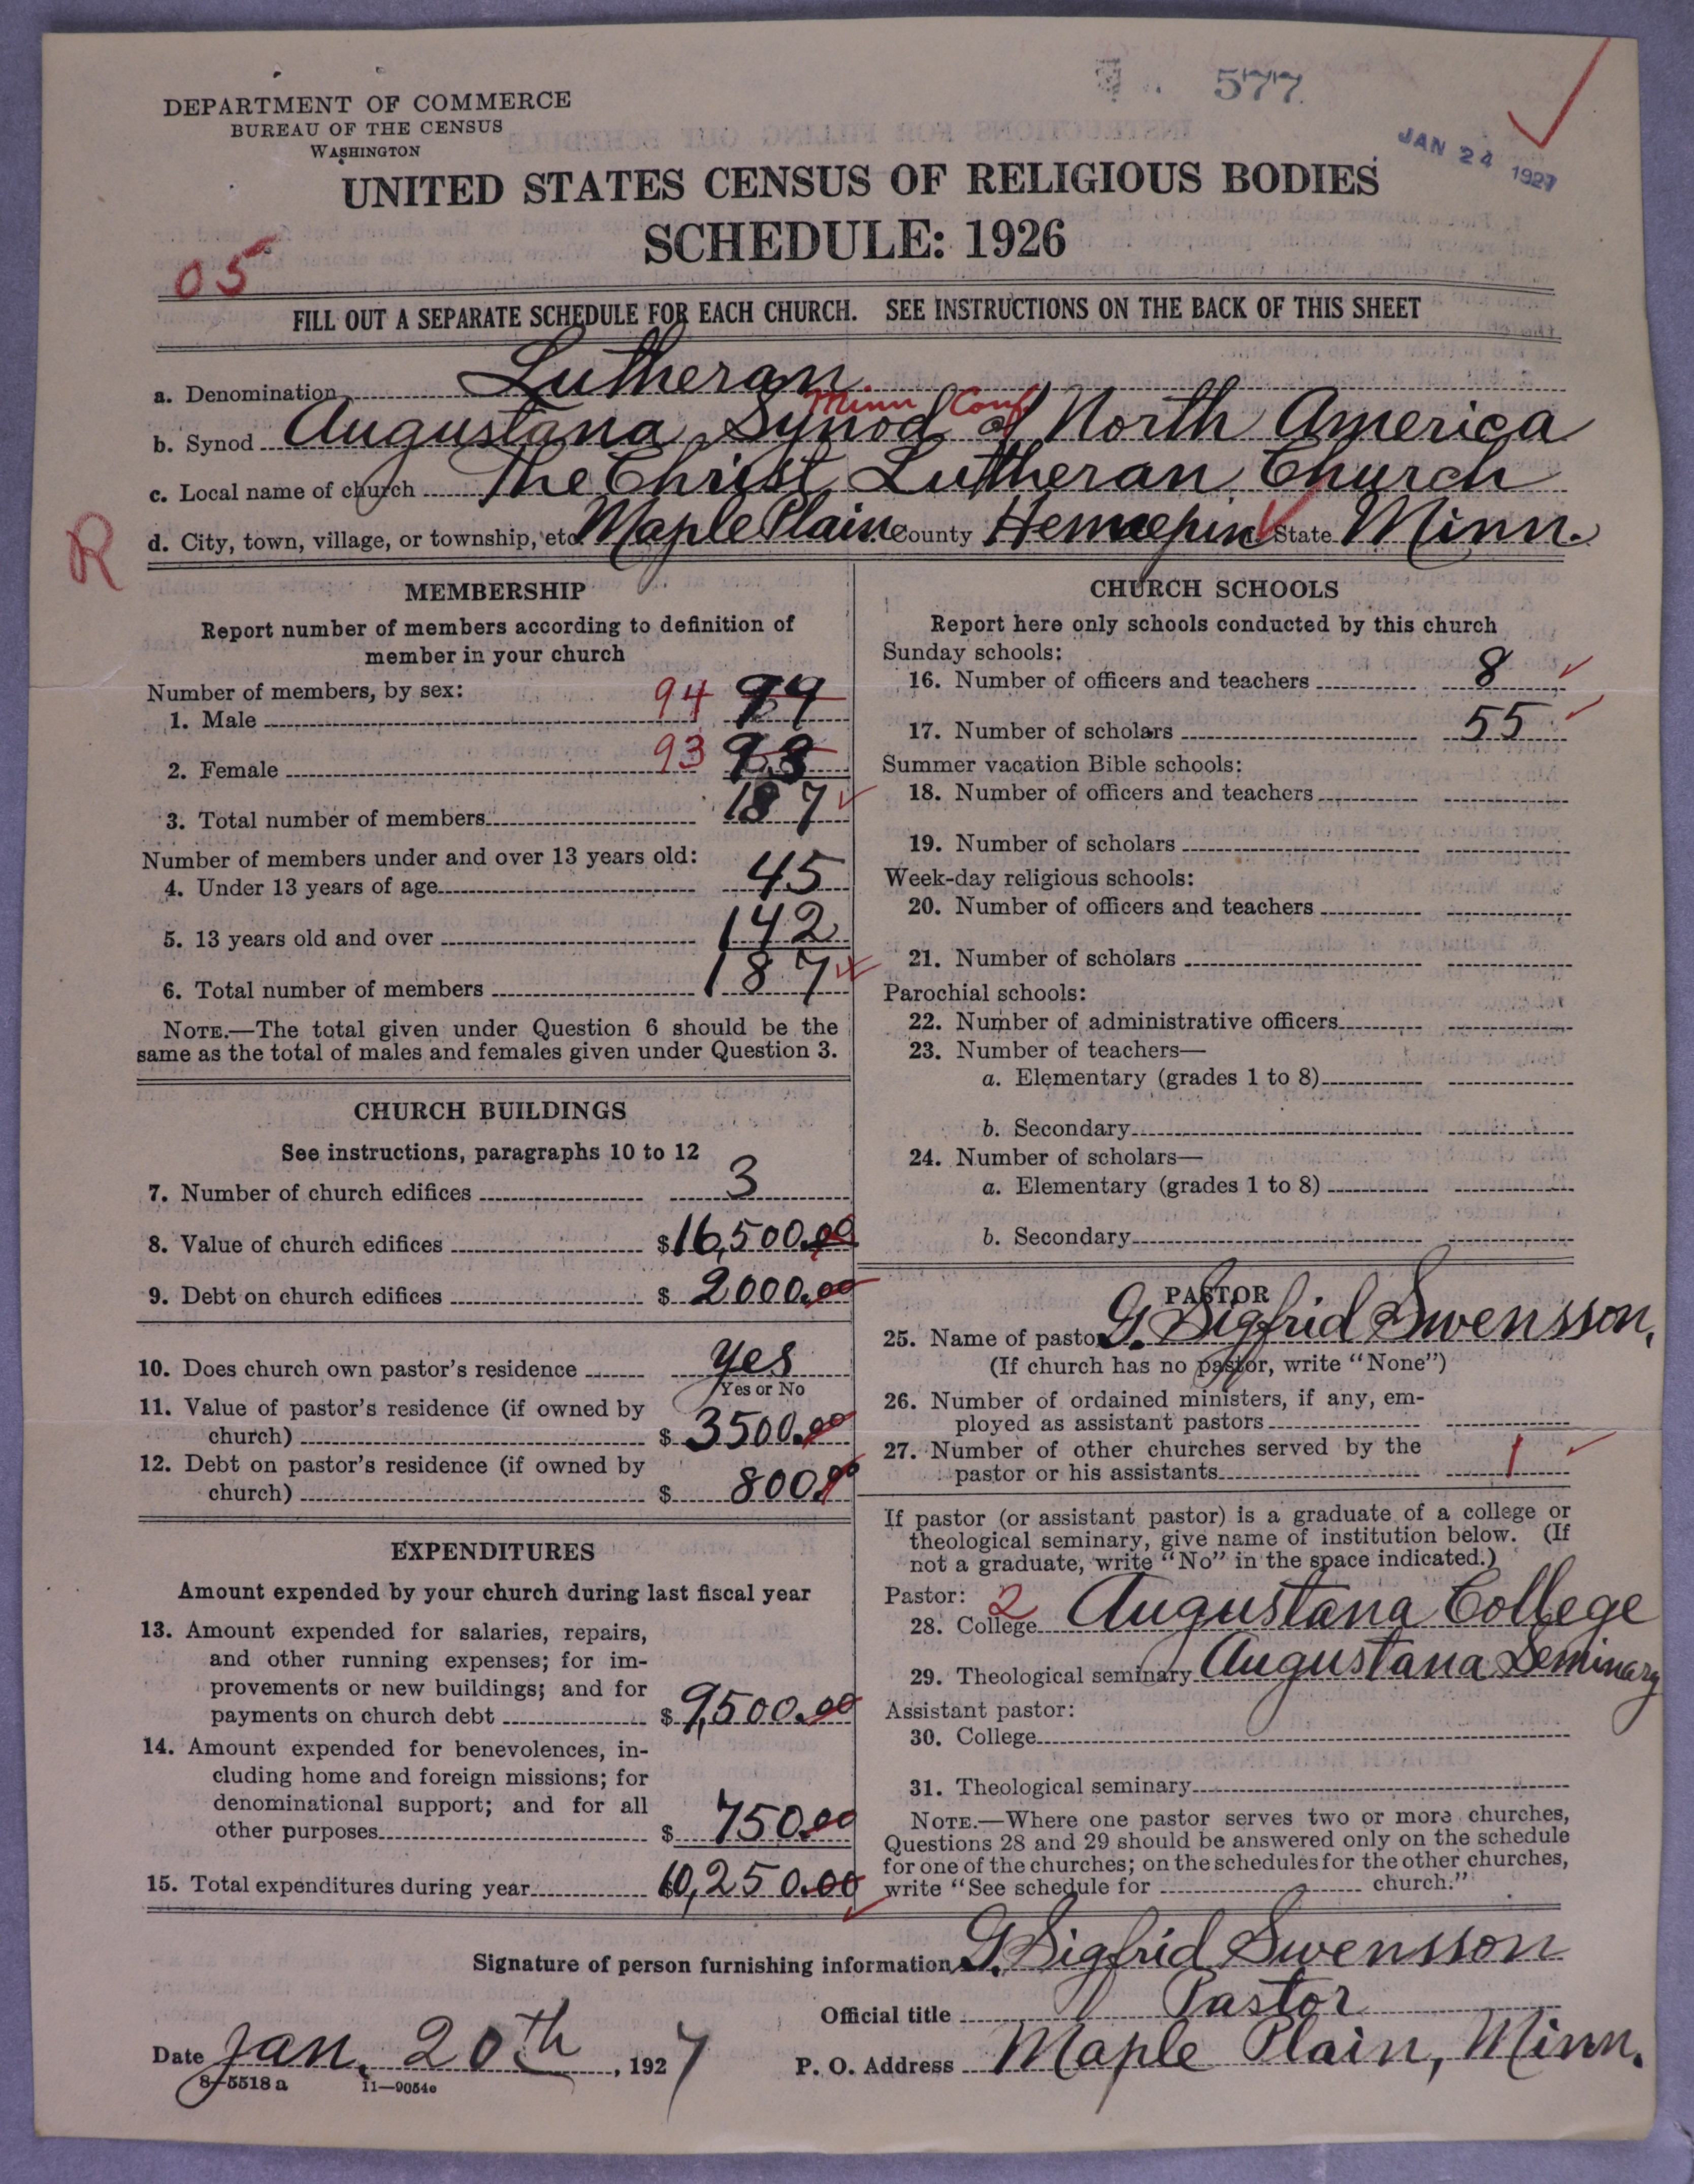 577
JAN 24 1927
DEPARTMENT OF COMMERCE
BUREAU OF THE CENSUS
WASHINGTON
UNITED STATES CENSUS OF RELIGIOUS BODIES
SCHEDULE: 1926
05
FILL OUT A SEPARATE SCHEDULE FOR EACH CHURCH. SEE INSTRUCTIONS ON THE BACK OF THIS SHEET
a. Denomination Lutheran
Minn Conf
b. Synod Augustana Synod of North America
c. Local name of church The Christ Lutheran Church
R
d. City, town, village, or township, etc. Maple Plain County Hennepin State Minn.
MEMBERSHIP
Report number of members according to definition of
member in your church
Number of members, by sex:
1. Male 94 94
2. Female 93 93
3. Total number of members 187
Number of members under and over 13 years old:
4. Under 13 years of age 45
5. 13 years old and over 142
6. Total number of members 187
NOTE.—The total given under Question 6 should be the
same as the total of males and females given under Question 3.
CHURCH BUILDINGS
See instructions, paragraphs 10 to 12
7. Number of church edifices 3
8. Value of church edifices $16,500.00
9. Debt on church edifices $2000.00
10. Does church own pastor's residence yes
Yes or No
11. Value of pastor's residence (if owned by
church) $3500.00
12. Debt on pastor's residence (if owned by
church) $800.00
EXPENDITURES
Amount expended by your church during last fiscal year
13. Amount expended for salaries, repairs,
and other running expenses; for im-
provements or new buildings; and for
payments on church debt $9,500.00
14. Amount expended for benevolences, in-
cluding home and foreign missions; for
denominational support; and for all
other purposes $750.00
15. Total expenditures during year $10,250.00
CHURCH SCHOOLS
Report here only schools conducted by this church
Sunday schools:
16. Number of officers and teachers 8
17. Number of scholars 55
Summer vacation Bible schools:
18. Number of officers and teachers
19. Number of scholars
Week-day religious schools:
20. Number of officers and teachers
21. Number of scholars
Parochial schools:
22. Number of administrative officers
23. Number of teachers—
a. Elementary (grades 1 to 8)
b. Secondary
24. Number of scholars—
a. Elementary (grades 1 to 8)
b. Secondary
PASTOR
25. Name of pastor G. Sigfrid Swensson.
(If church has no pastor, write "None")
26. Number of ordained ministers, if any, em-
ployed as assistant pastors
27. Number of other churches served by the
pastor or his assistants 1
If pastor (or assistant pastor) is a graduate of a college or
theological seminary, give name of institution below. (If
not a graduate, write "No" in the space indicated.)
Pastor:
28. College 2 Augustana College
29. Theological seminary Augustana Seminary
Assistant pastor:
30. College
31. Theological seminary
NOTE.—Where one pastor serves two or more churches,
Questions 28 and 29 should be answered only on the schedule
for one of the churches; on the schedules for the other churches,
write "See schedule for church."
Signature of person furnishing information G. Sigfrid Swensson
Official title Pastor
Date Jan. 20th, 1927
P. O. Address Maple Plain, Minn.
8-5518a 11—9054e